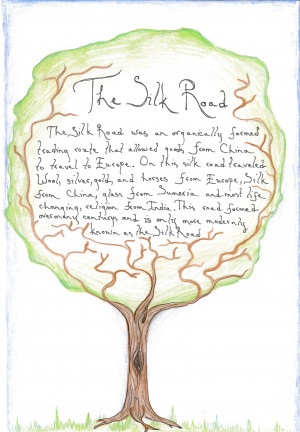 The Silk Road
The Silk Road was an organically formed
trading route that allowed goods from China
to travel to Europe. On this silk road traveled
Wool, silver, gold, and horses from Europe, Silk
from China, glass from Sumeria and most life
changing, religion from India. This road formed
over many century and is only more modernly
known as the Silk Road